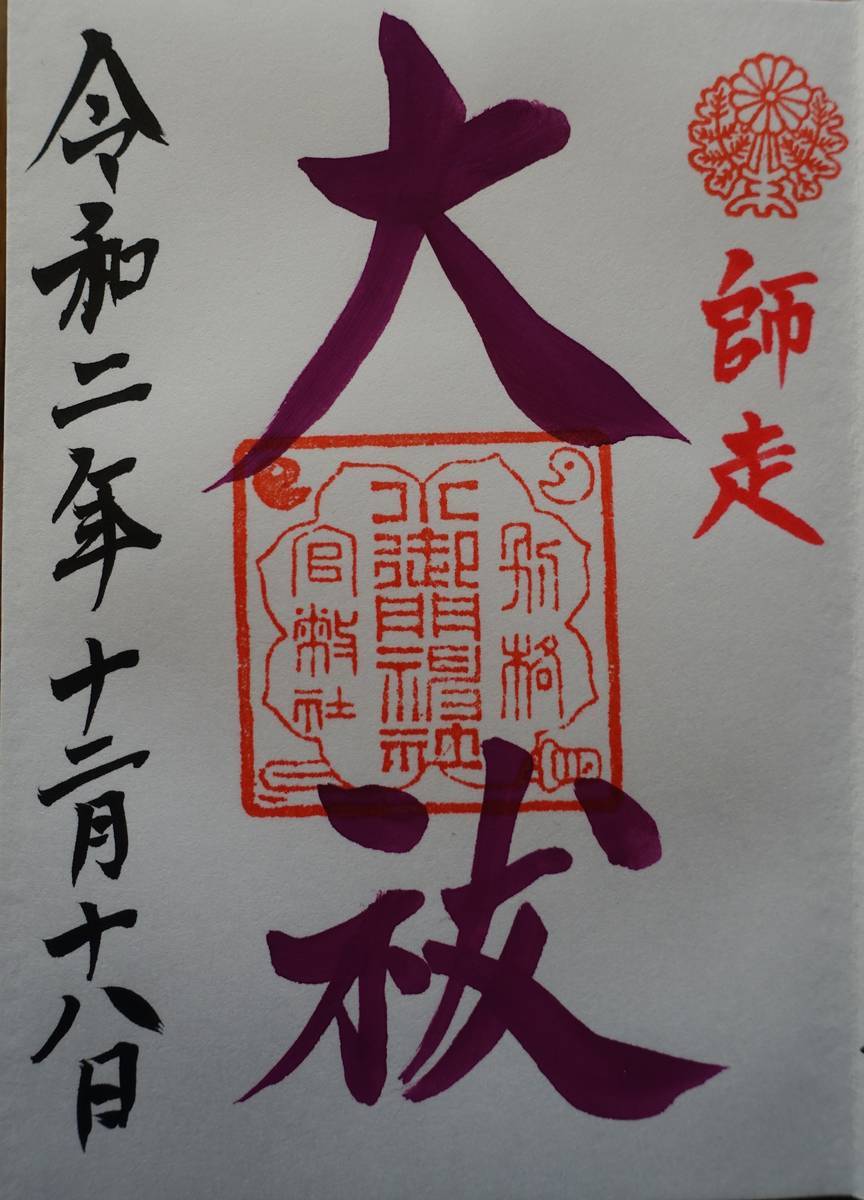 師走
大祓
別格
小御門神社
官幣社
令和二年十二月十八日